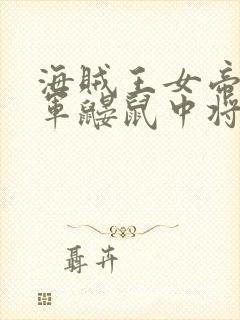 海贼王女帝
军鼹鼠中将
聶卉